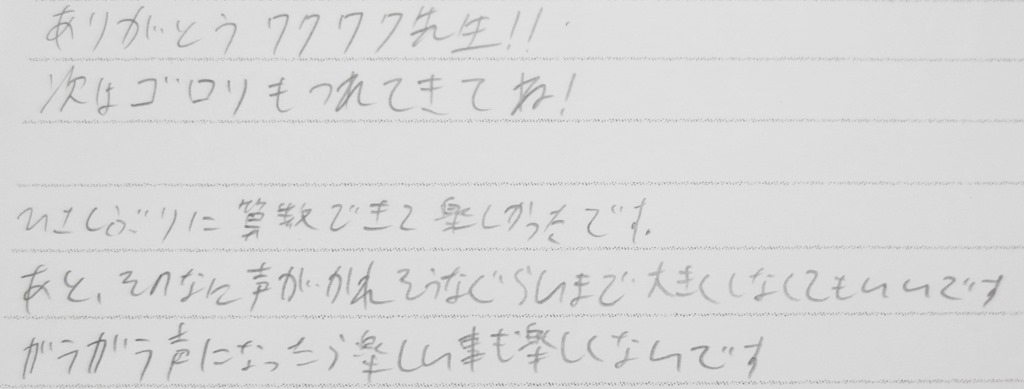 ありがとうワクワク先生!!
次はゴロリもつれてきてね!
ひさしぶりに算数できて楽しかったです.
あと、そんなに声がかれそうなぐらいまで大きくしなくてもいいです
ガラガラ声になったら楽しい事も楽しくないです